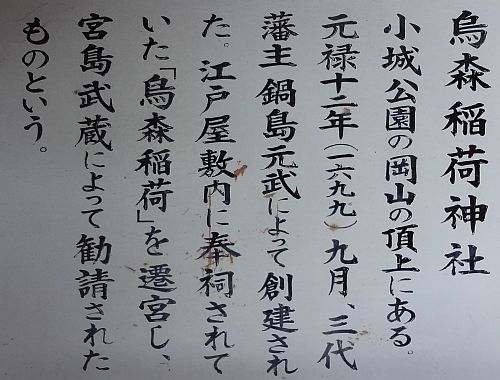 烏森稲荷神社
小城公園の岡山の頂上にある。
元禄十二年(一六九九)九月、三代
藩主鍋島元武によって創建され
た。江戸屋敷内に奉祠されて
いた「烏森稲荷」を遷宮し、
宮島武蔵によって勧請された
ものという。